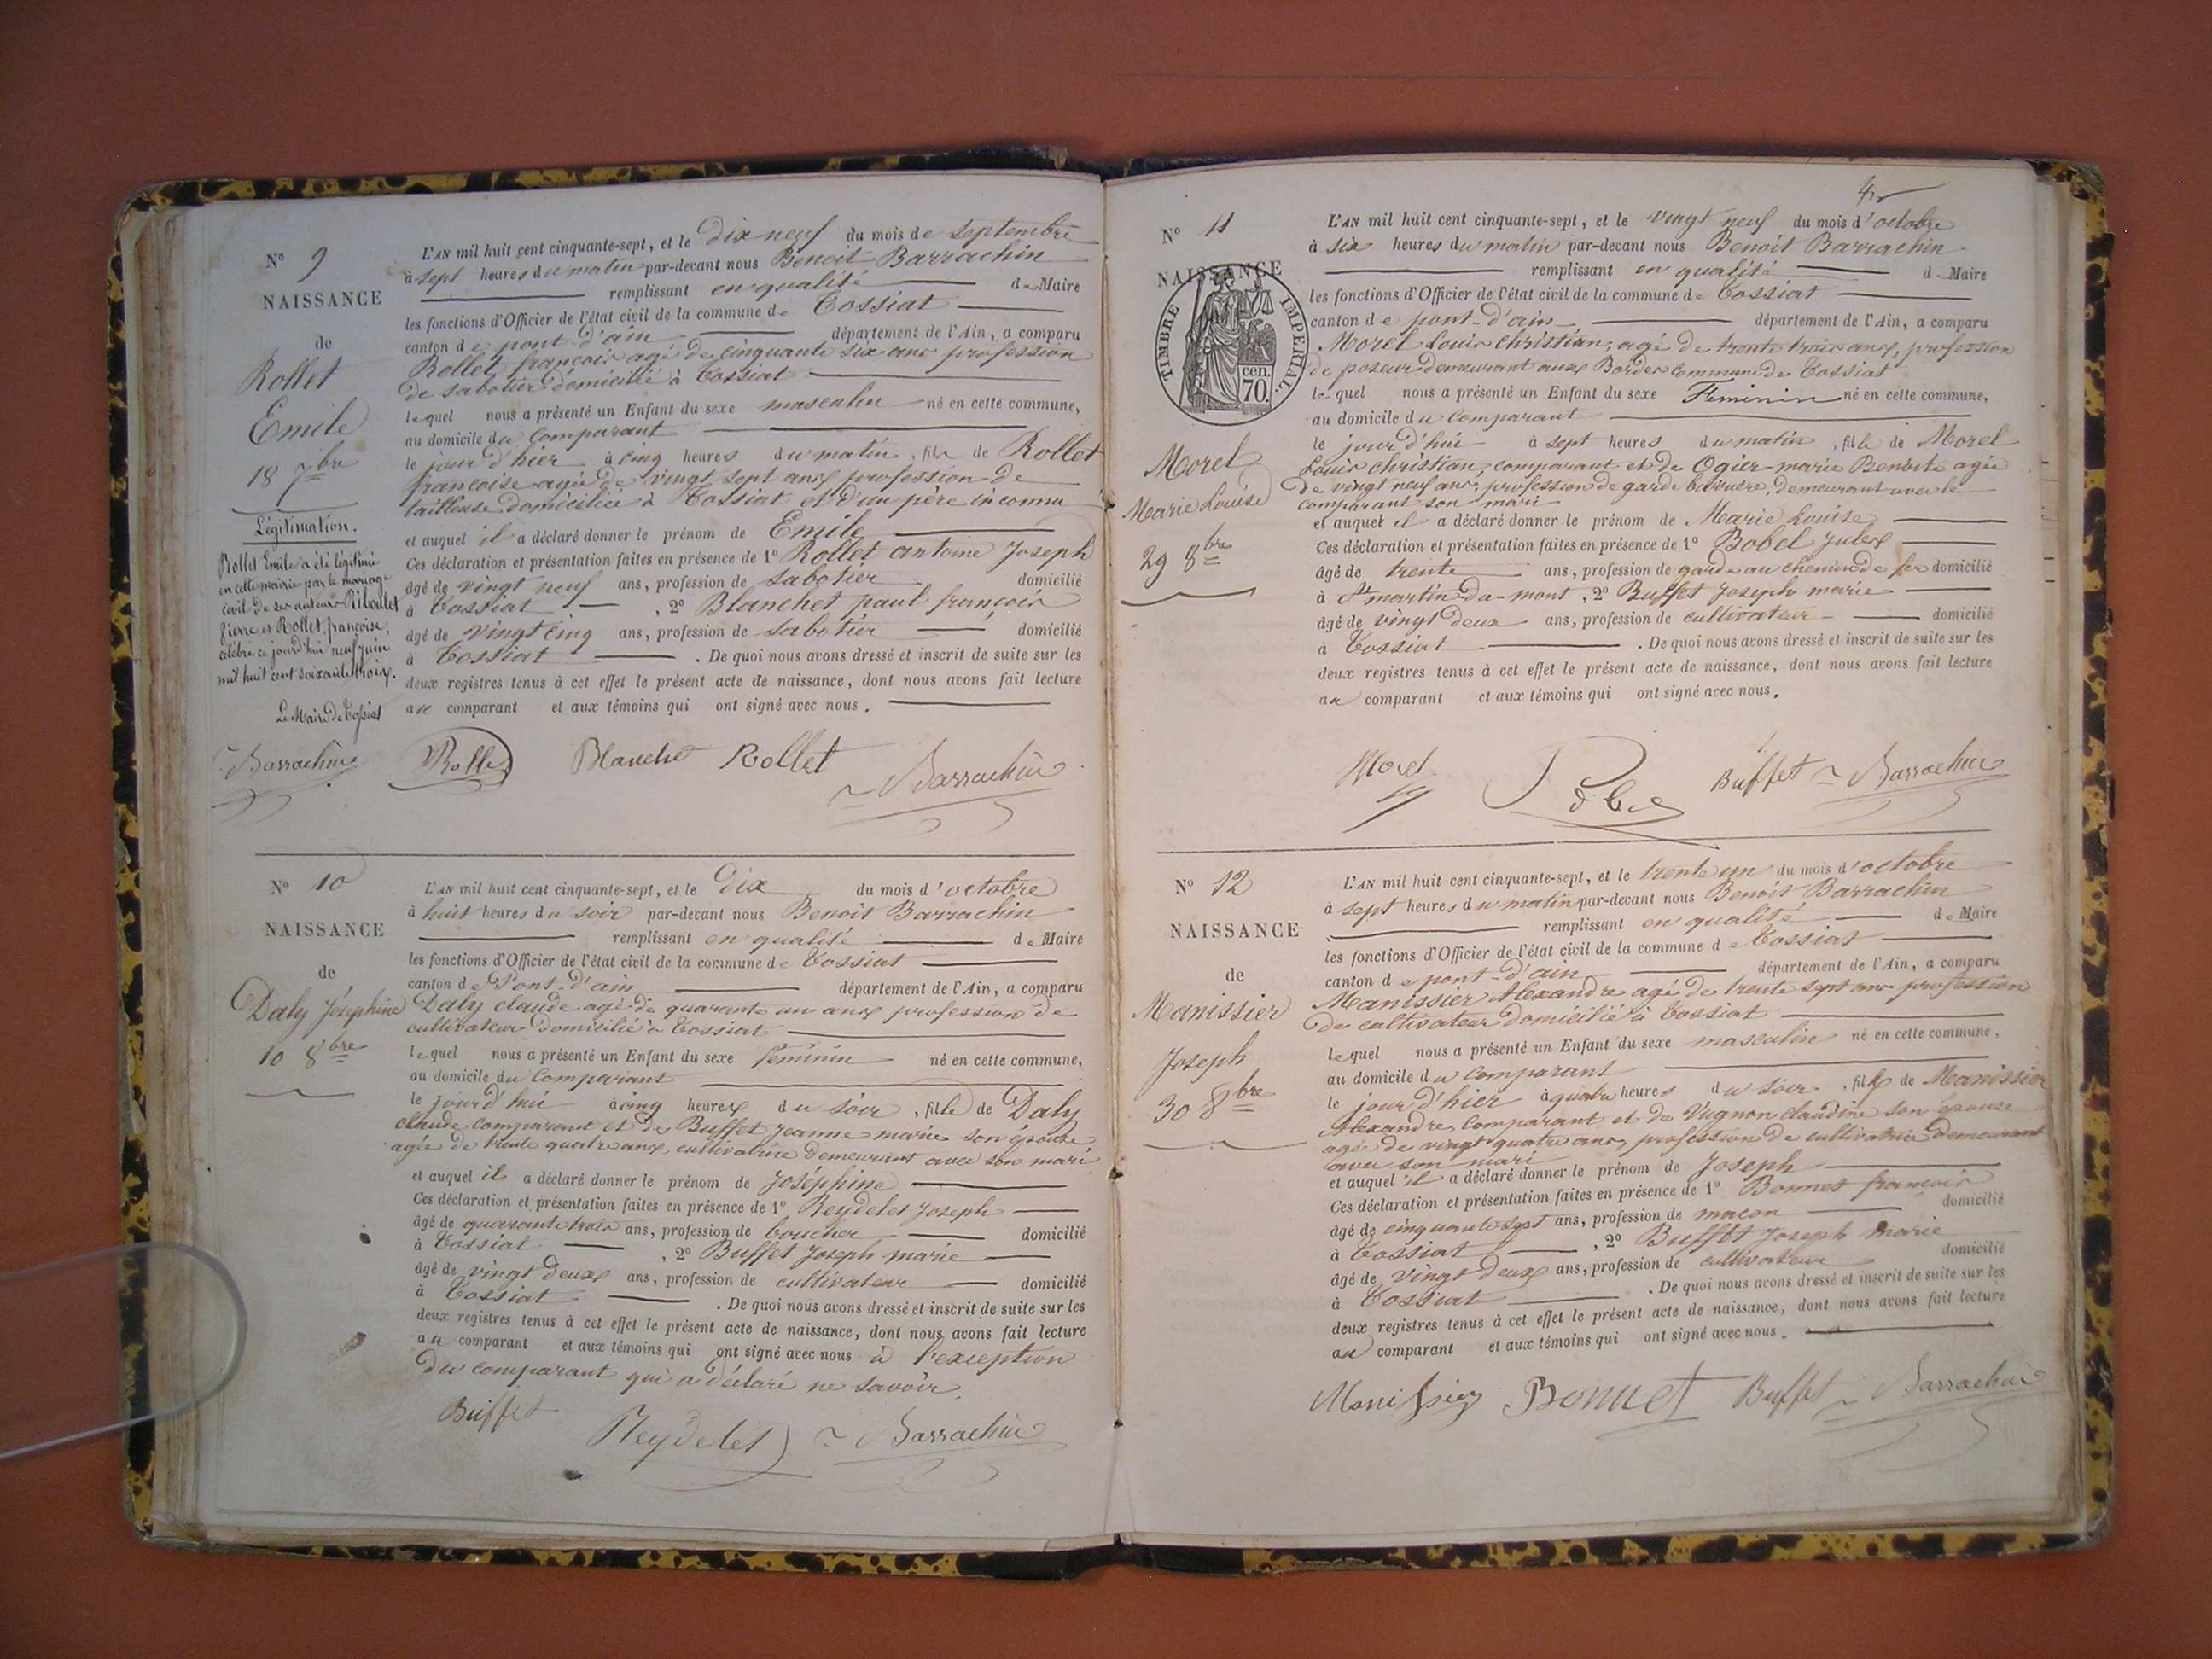 N° 9
NAISSANCE
de
Rollet
Emile
18 7bre
Légitimation.
Rollet Emile a été légitimé
en cette mairie par le mariage
civil de ses auteurs Riboulet
Pierre et Rollet françoise,
célébré ce jourd'hui neuf juin
mil huit cent soixante trois.
Le Maire de Tossiat
Barrachin
L'AN mil huit cent cinquante-sept, et le dix neuf du mois de septembre
à sept heures du matin par-devant nous Benoit Barrachin
remplissant en qualité de Maire
les fonctions d'Officier de l'état civil de la commune de Tossiat
canton de pont d'ain département de l'Ain, a comparu
Rollet françois agé de cinquante six ans profession
de sabotier domicilié à Tossiat
lequel nous a présenté un Enfant du sexe masculin né en cette commune,
au domicile du comparant
le jour d'hier à cinq heures du matin, fils de Rollet
françoise agée de vingt sept ans profession de
tailleuse domiciliée à Tossiat et d'un père inconnu
et auquel il a déclaré donner le prénom de Emile
Ces déclaration et présentation faites en présence de 1° Rollet antoine Joseph
âgé de vingt neuf ans, profession de sabotier domicilié
à Tossiat, 2° Blanchet paul françois
âgé de vingt cinq ans, profession de sabotier domicilié
à Tossiat. De quoi nous avons dressé et inscrit de suite sur les
deux registres tenus à cet effet le présent acte de naissance, dont nous avons fait lecture
au comparant et aux témoins qui ont signé avec nous.
Rollet Blanchet Rollet
Barrachin
N° 10
NAISSANCE
de
Daly Joséphine
10 8bre
L'AN mil huit cent cinquante-sept, et le Dix du mois d'octobre
à huit heures du soir par-devant nous Benoit Barrachin
remplissant en qualité de Maire
les fonctions d'Officier de l'état civil de la commune de Tossiat
canton de Pont-d'ain département de l'Ain, a comparu
Daly claude agé de quarante un ans profession de
cultivateur domicilié à Tossiat
lequel nous a présenté un Enfant du sexe féminin né en cette commune,
au domicile du Comparant
le jourd'hui à cinq heures du soir, fille de Daly
claude comparant et de Buffet jeanne marie son épouse
agée de trente quatre ans, cultivatrice demeurant avec son mari
et auquel il a déclaré donner le prénom de Joséphine
Ces déclaration et présentation faites en présence de 1° Reydelet Joseph
âgé de quarante trois ans, profession de boucher domicilié
à Tossiat, 2° Buffet Joseph marie
âgé de vingt deux ans, profession de cultivateur domicilié
à Tossiat. De quoi nous avons dressé et inscrit de suite sur les
deux registres tenus à cet effet le présent acte de naissance, dont nous avons fait lecture
au comparant et aux témoins qui ont signé avec nous à l'exception
du comparant qui a déclaré ne savoir.
Buffet
Reydelet Barrachin
4
N° 11
NAISSANCE
TIMBRE IMPERIAL
70 cen.
Morel
Marie Louise
29 8bre
L'AN mil huit cent cinquante-sept, et le vingt neuf du mois d'octobre
à six heures du matin par-devant nous Benoit Barrachin
remplissant en qualité de Maire
les fonctions d'Officier de l'état civil de la commune de Tossiat
canton de pont-d'ain département de l'Ain, a comparu
Morel Louis Christian, agé de trente trois ans, profession
de poseur demeurant aux Bordes commune de Tossiat
lequel nous a présenté un Enfant du sexe Féminin né en cette commune,
au domicile du comparant
le jour d'hui à sept heures du matin, fille de Morel
Louis Christian, comparant et de Ogier marie Benoite agée
de vingt neuf ans, profession de garde barrière, demeurant avec le
comparant son mari
et auquel il a déclaré donner le prénom de Marie Louise
Ces déclaration et présentation faites en présence de 1° Bobel Jules
âgé de trente ans, profession de garde au chemin de fer domicilié
à St martin-du-mont, 2° Buffet Joseph marie
âgé de vingt deux ans, profession de cultivateur domicilié
à Tossiat. De quoi nous avons dressé et inscrit de suite sur les
deux registres tenus à cet effet le présent acte de naissance, dont nous avons fait lecture
au comparant et aux témoins qui ont signé avec nous.
Morel Buffet Barrachin
N° 12
NAISSANCE
de
Manissier
Joseph
30 8bre
L'AN mil huit cent cinquante-sept, et le trente un du mois d'octobre
à sept heures du matin par-devant nous Benoit Barrachin
remplissant en qualité de Maire
les fonctions d'Officier de l'état civil de la commune de Tossiat
canton de pont-d'ain département de l'Ain, a comparu
Manissier Alexandre agé de trente sept ans profession
de cultivateur domicilié à Tossiat
lequel nous a présenté un Enfant du sexe masculin né en cette commune,
au domicile du comparant
le jour d'hier à quatre heures du soir, fils de Manissier
Alexandre, comparant et de Vugnon claudine son épouse
agée de vingt quatre ans, profession de cultivatrice demeurant
avec son mari
et auquel il a déclaré donner le prénom de Joseph
Ces déclaration et présentation faites en présence de 1° Bonnet françois
âgé de cinquante sept ans, profession de maçon domicilié
à Tossiat, 2° Buffet Joseph marie
âgé de vingt deux ans, profession de cultivateur domicilié
à Tossiat. De quoi nous avons dressé et inscrit de suite sur les
deux registres tenus à cet effet le présent acte de naissance, dont nous avons fait lecture
au comparant et aux témoins qui ont signé avec nous.
Manissier Bonnet Buffet Barrachin